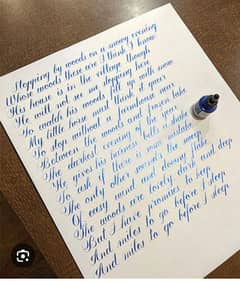 Stopping by woods on a snowy evening
Whose woods these are I think I know
His house is in the village though
He will not see me stopping here
To watch his woods fill up with snow
My little horse must think it queer
To stop without a farmhouse near
Between the woods and frozen lake
The darkest evening of the year
He gives his harness bells a shake
To ask if there is some mistake
The only other sound's the sweep
Of easy wind and downy flake
The woods are lovely dark and deep
But I have promises to keep
And miles to go before I sleep
And miles to go before I sleep